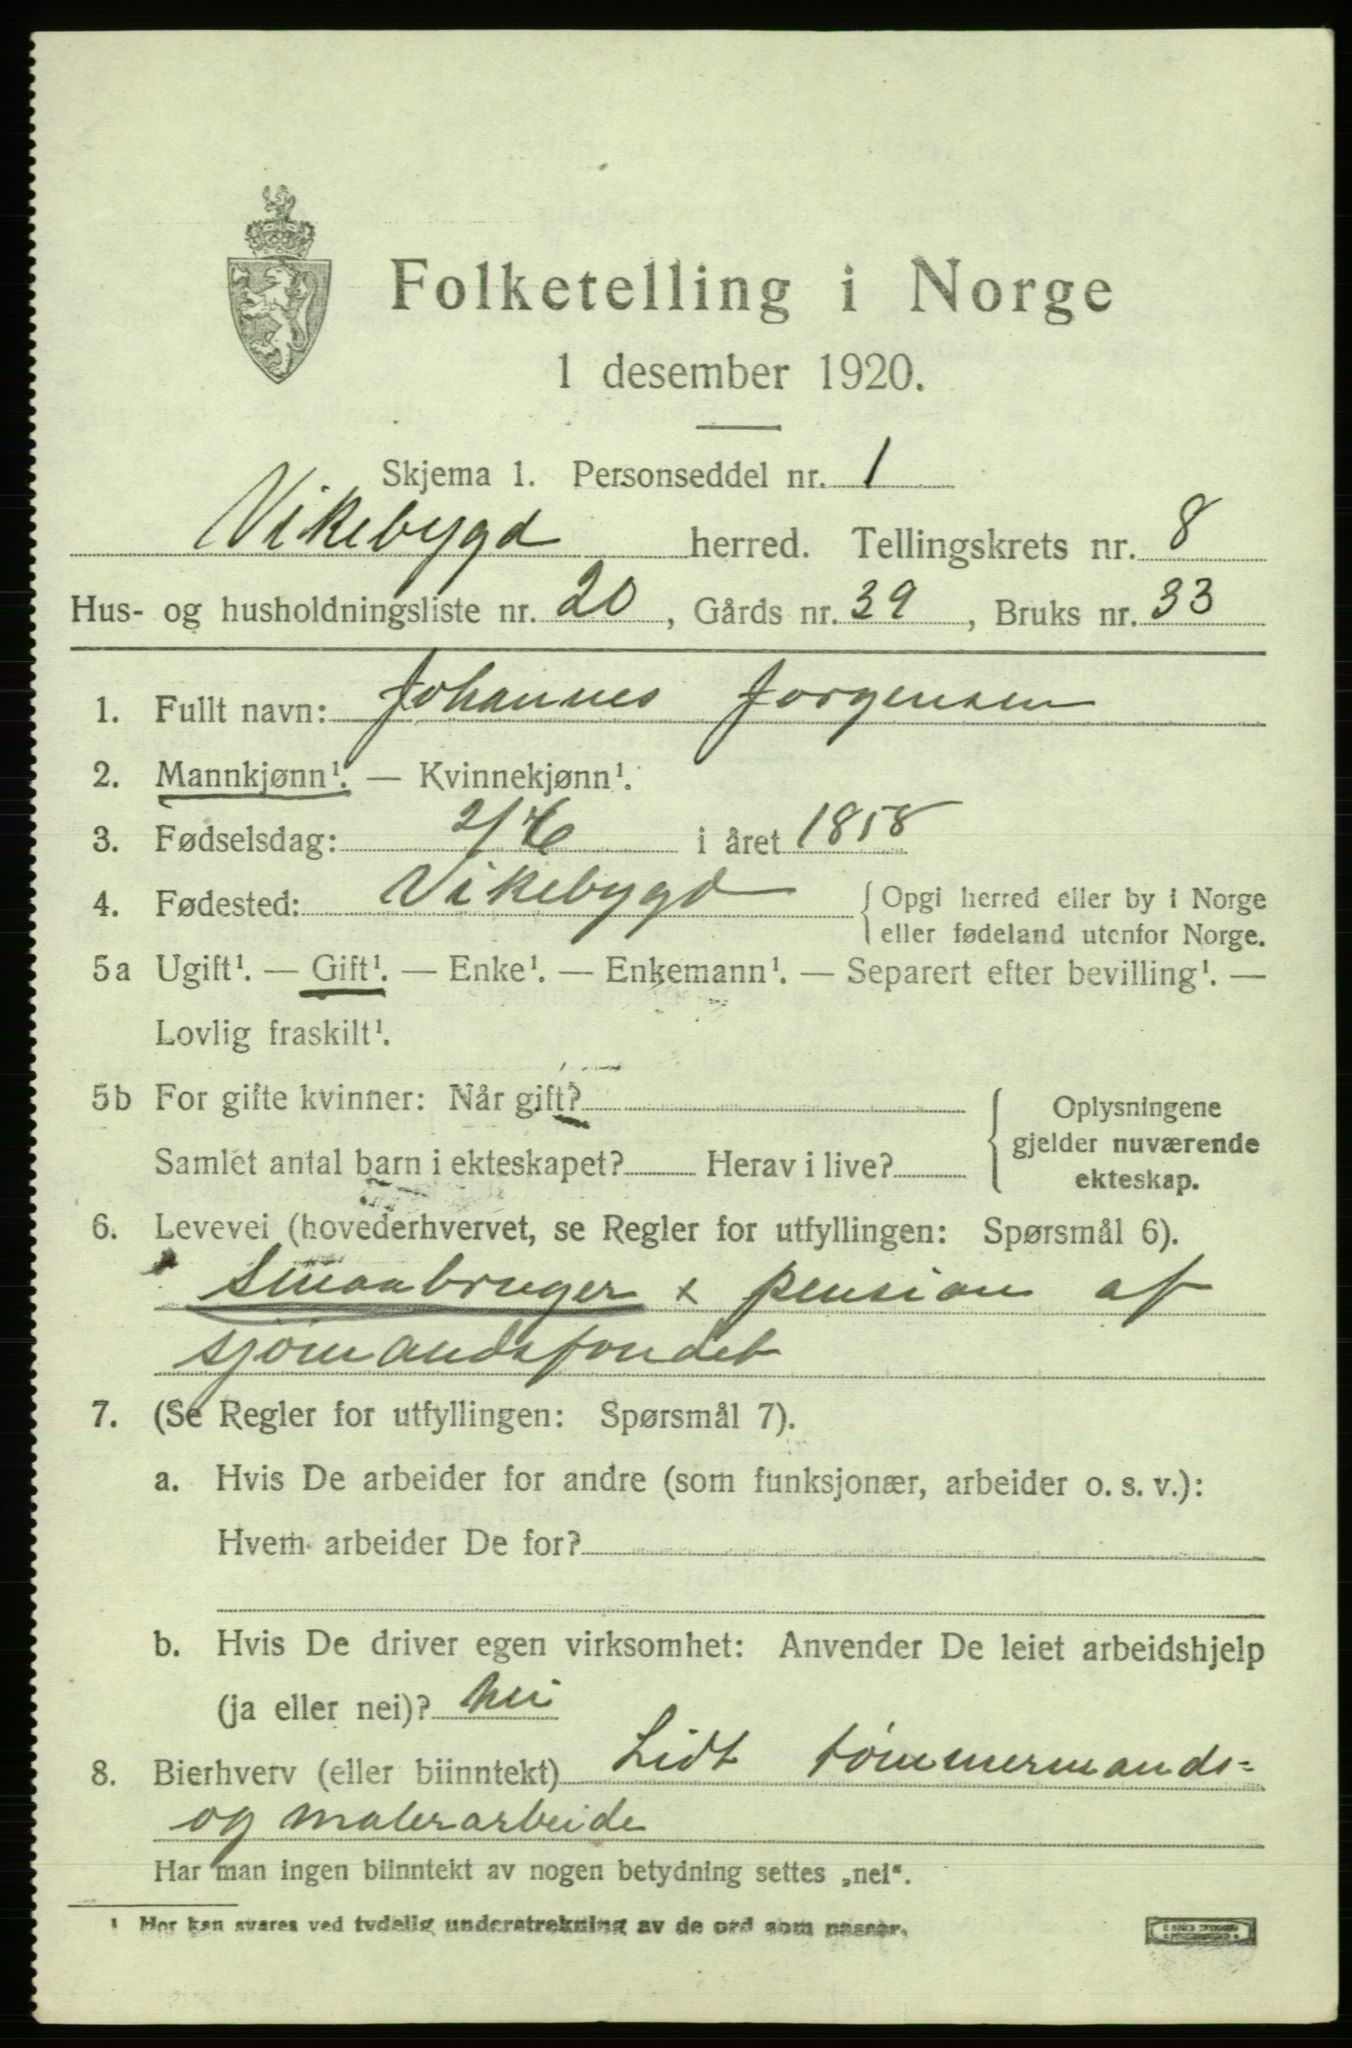 Folketelling i Norge
1 desember 1920.
Skjema 1. Personseddel nr. 1
Vikebygd herred. Tellingskrets nr. 8
Hus- og husholdningsliste nr. 20, Gårds nr. 39, Bruks nr. 33
1. Fullt navn: Johannes Jorgensen
2. Mannkjønn¹. — Kvinnekjønn¹.
3. Fødselsdag: 2/6 i året 1858
4. Fødested: Vikebygd { Opgi herred eller by i Norge
eller fødeland utenfor Norge.
5a Ugift¹. — Gift¹. — Enke¹. — Enkemann¹. — Separert efter bevilling¹. —
Lovlig fraskilt¹.
5b For gifte kvinner: Når gift?
Samlet antal barn i ekteskapet? Herav i live?
Oplysningene
gjelder nuværende
ekteskap.
6. Levevei (hovederhvervet, se Regler for utfyllingen: Spørsmål 6).
Smaabruger x pension af
sjömandsfondet
7. (Se Regler for utfyllingen: Spørsmål 7).
a. Hvis De arbeider for andre (som funksjonær, arbeider o. s. v.):
Hvem arbeider De for?
b. Hvis De driver egen virksomhet: Anvender De leiet arbeidshjelp
(ja eller nei)? nei
8. Bierhverv (eller biinntekt) Lidt tømmermands-
og malerarbeide
Har man ingen biinntekt av nogen betydning settes „nei“.
¹ Her kan svares ved tydelig understrekning av de ord som passer.